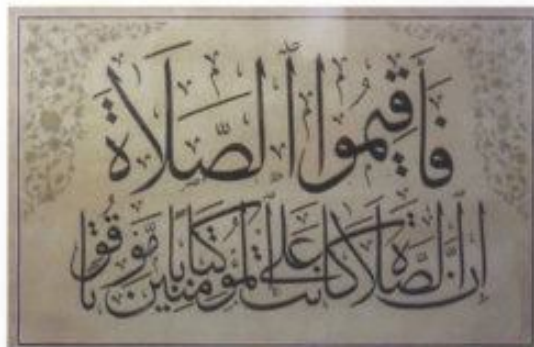 فَأَقِيمُوا الصَّلَاةَ
إِنَّ الصَّلَاةَ كَانَتْ عَلَى الْمُؤْمِنِينَ كِتَابًا مَّوْقُوتًا